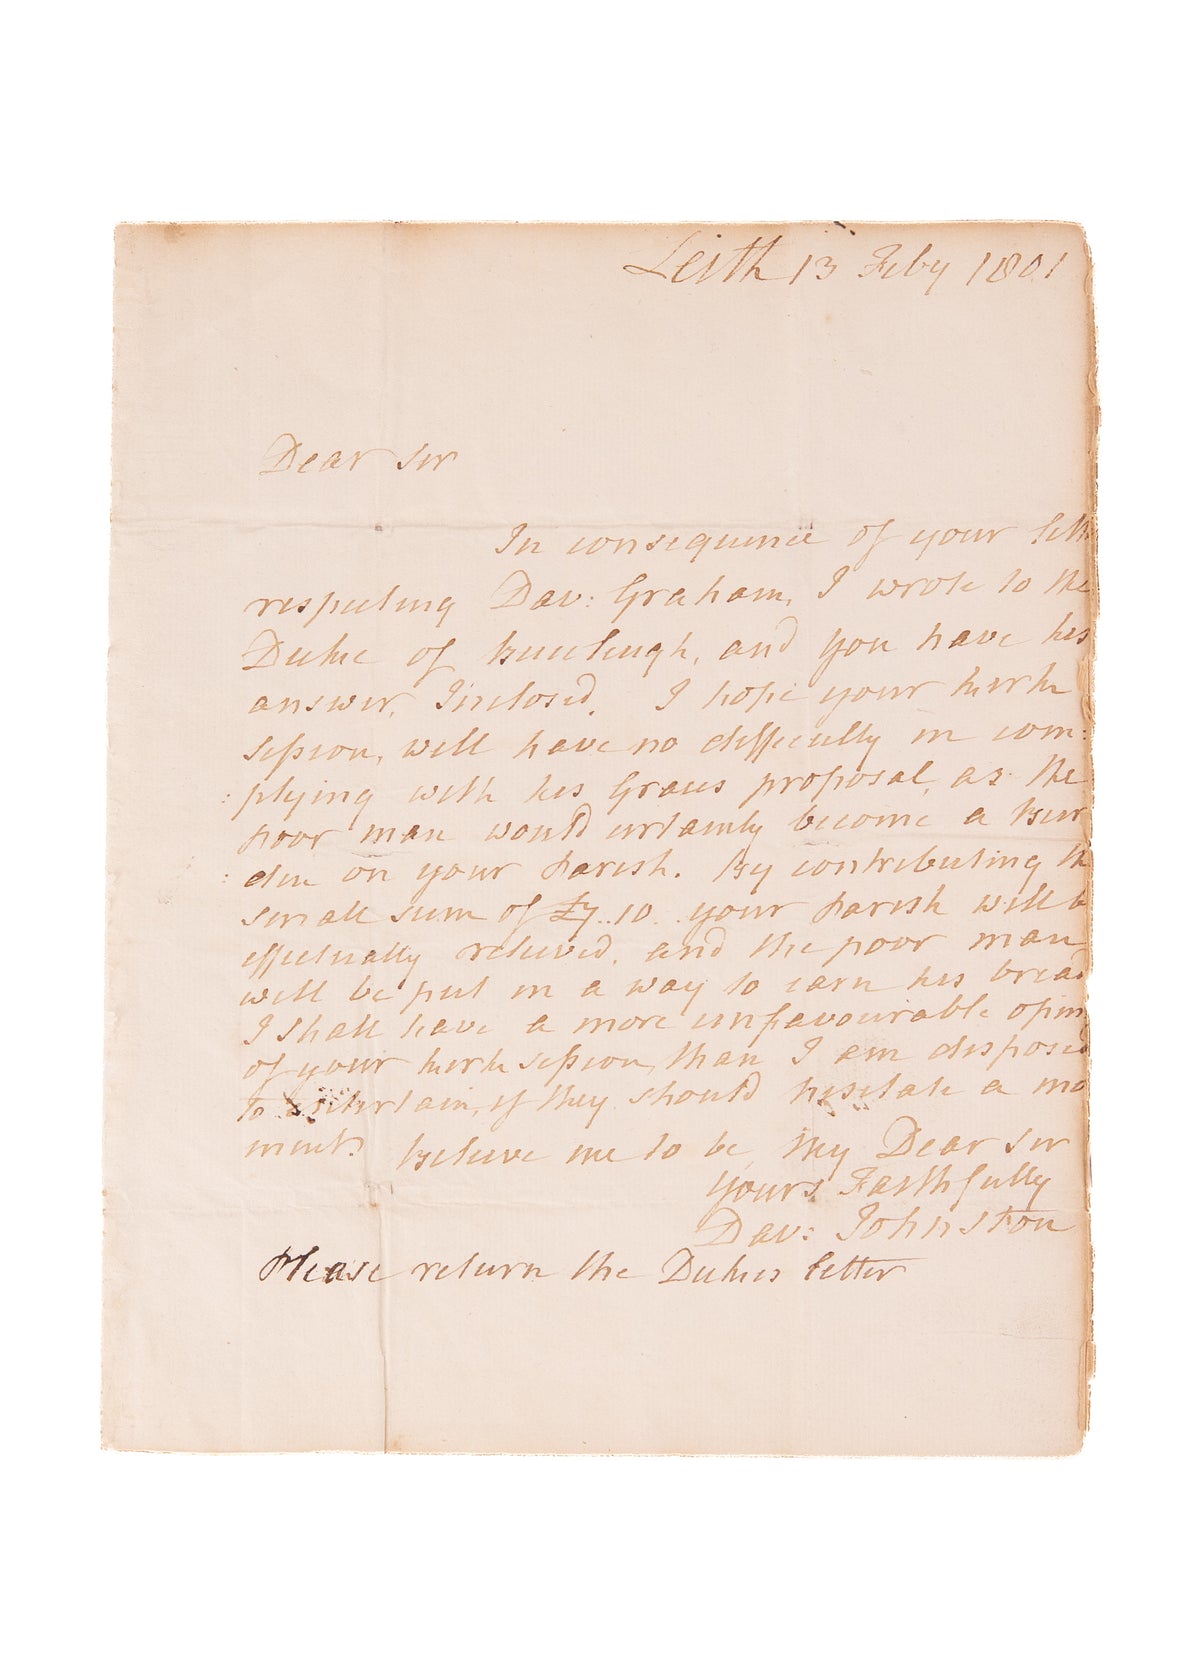 Leith 13 Feby 1801
Dear Sir
In consequence of your lett
respecting Dav: Graham, I wrote to the
Duke of Buccleugh, and you have his
answer, Inclosed. I hope your kirk
session, will have no difficulty in com:
: plying with his Graces proposal, as the
poor man would certainly become a Bur
: den on your parish. By contributing th
small sum of £7..10.. your parish will b
effectually relieved, and the poor man
will be put in a way to earn his bread
I shall have a more unfavourable opin
of your kirk session, than I am disposed
to entertain, if they should hesitate a mo
ment. Believe me to be My Dear Sir
Yours Faithfully
Dav: Johnston
Please return the Dukes letter